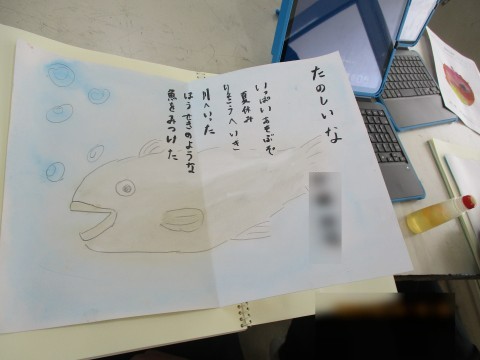 たのしいな
いっぱいあそぶぞ
夏休み
りょこうへいき
川へいった
ほうせきのような
魚をみつけた